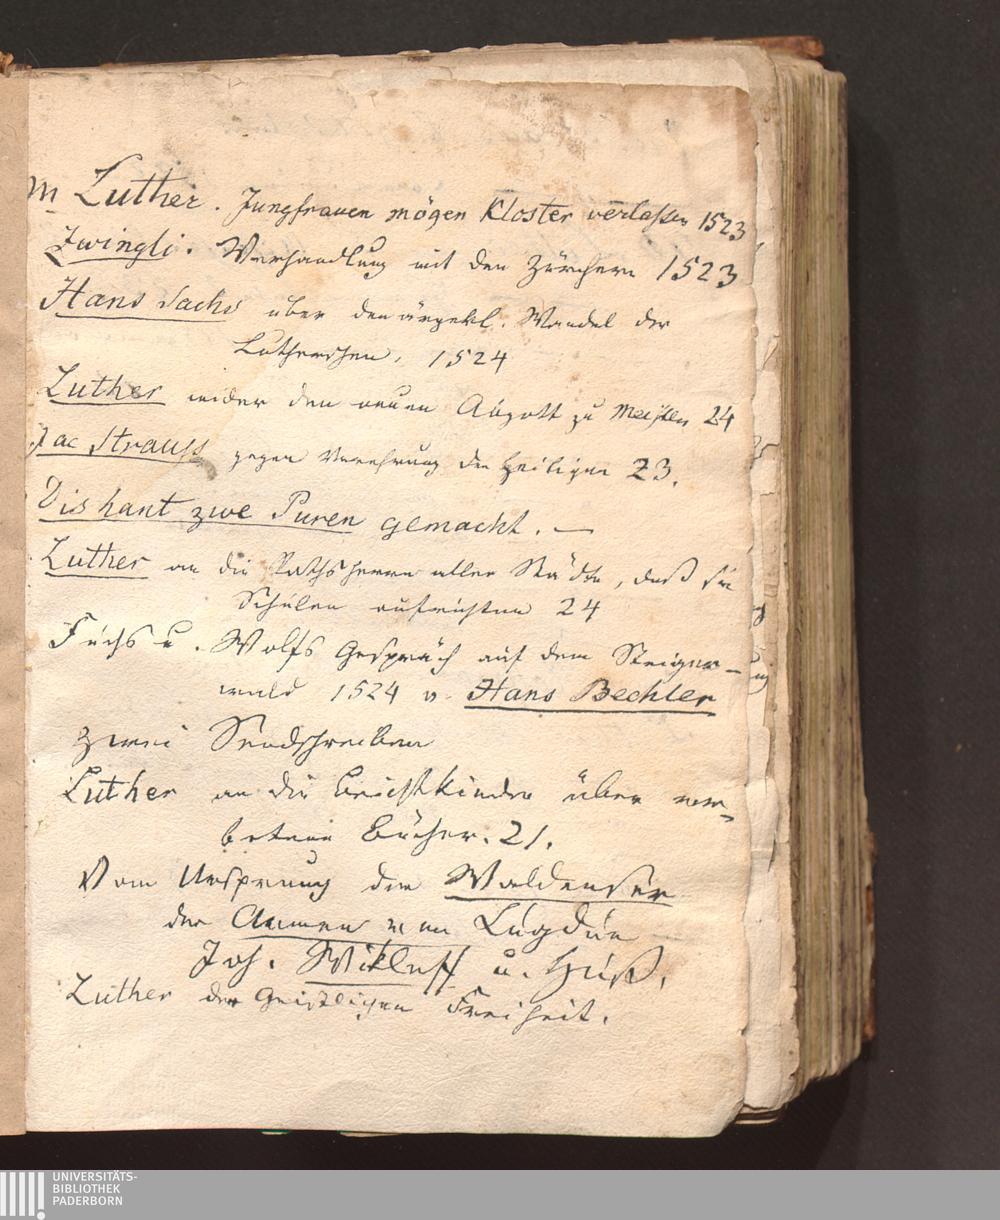 M Luther. Jungfrauen mögen Kloster verlassen 1523
Zwingli. Verhandlung mit den Zürchern 1523
Hans Sachs über den ärgerl. Wandel der
Lutherschen, 1524
Luther wider den neuen Abgott zu Meißen 24
Jac Strauss gegen Verehrung der Heiligen 23.
Dis hant zwe Puren gemacht. —
Luther an die Rathsherrn aller Städte, daß sie
Schulen aufrichten 24
Fuchs u. Wolfs Gespräch auf dem Steiger-
wald 1524 v. Hans Bechler
zwei Sendschreiben
Luther an die Beichtkinder über ver-
botene Bücher. 21.
Vom Ursprung der Waldenser
der Armen von Lugdun
Joh. Wikleff u. Huß.
Luther der Geistlichen Freiheit.
UNIVERSITÄTS-
BIBLIOTHEK
PADERBORN